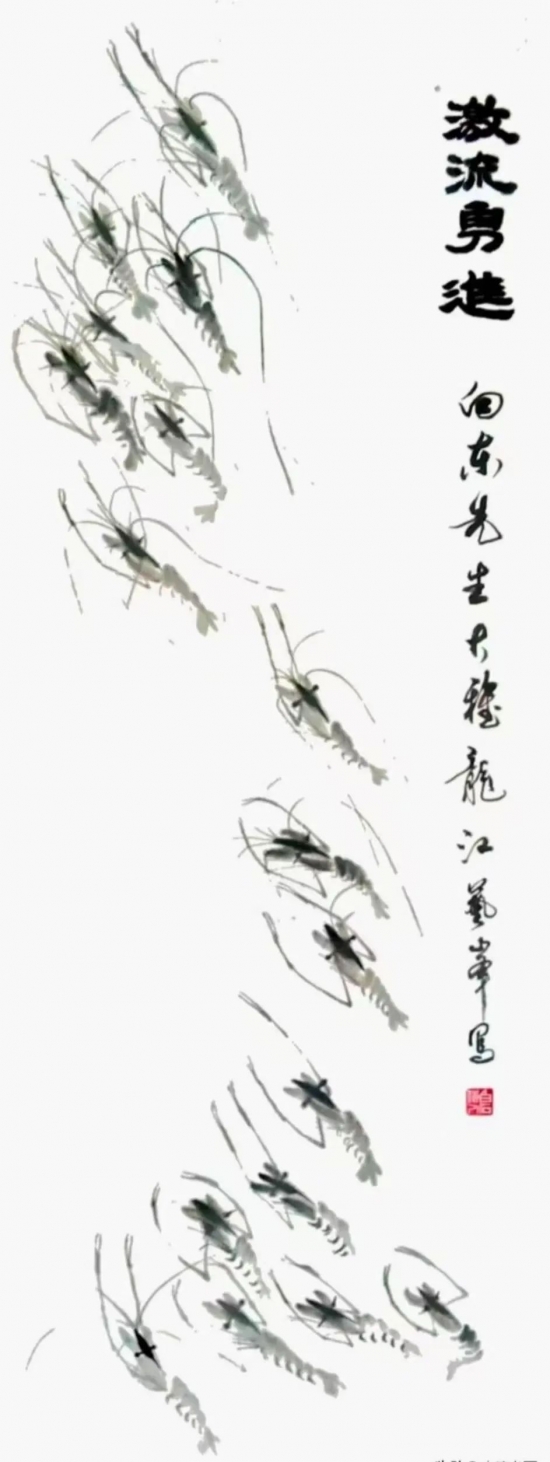 激流勇進
向东先生大雅龍江藝峯写